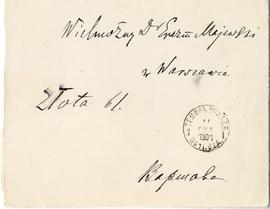 Wielmożny Dr Erazm Majewski
w Warszawie
Złota 61.
11
1901
Варшава.